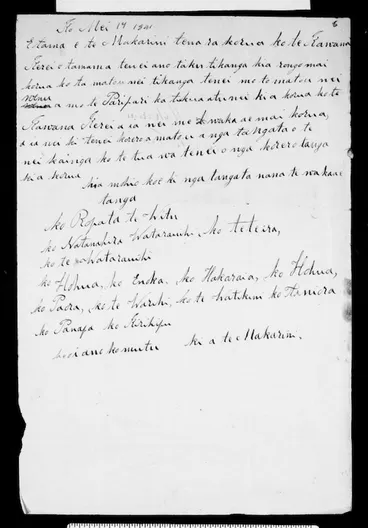 6
Mei 17
E tama e te Makarini tena ra korua ko te Kawana
tama ma tenei ano taku tikanga kia rongo mai
korua ko ta matou nei tikanga tenei mo to matou nei
wenua a mo te Paripari ka tukua atu nei kia korua ko te
Kawana a ia nei me waka ae mai korua,
a ia nei ki tenei korero a matou a nga tangata o te
nei kainga ko te tua wa tenei o nga korero tanga
kia korua
kia mohio koe ki nga tangata nana te wakaae
tanga
ko Ropata te Hitu
ko Natanahira Wataranihi, ko teteira,
ko te Wataranihi
ko Hohua, ko Enoka. ko Hakaraia, ko Hohua,
ko Paora, ko te Warihi, ko te Watikini ko Tamiora
ko
heoi ano ko mutu ki a te Makarini.